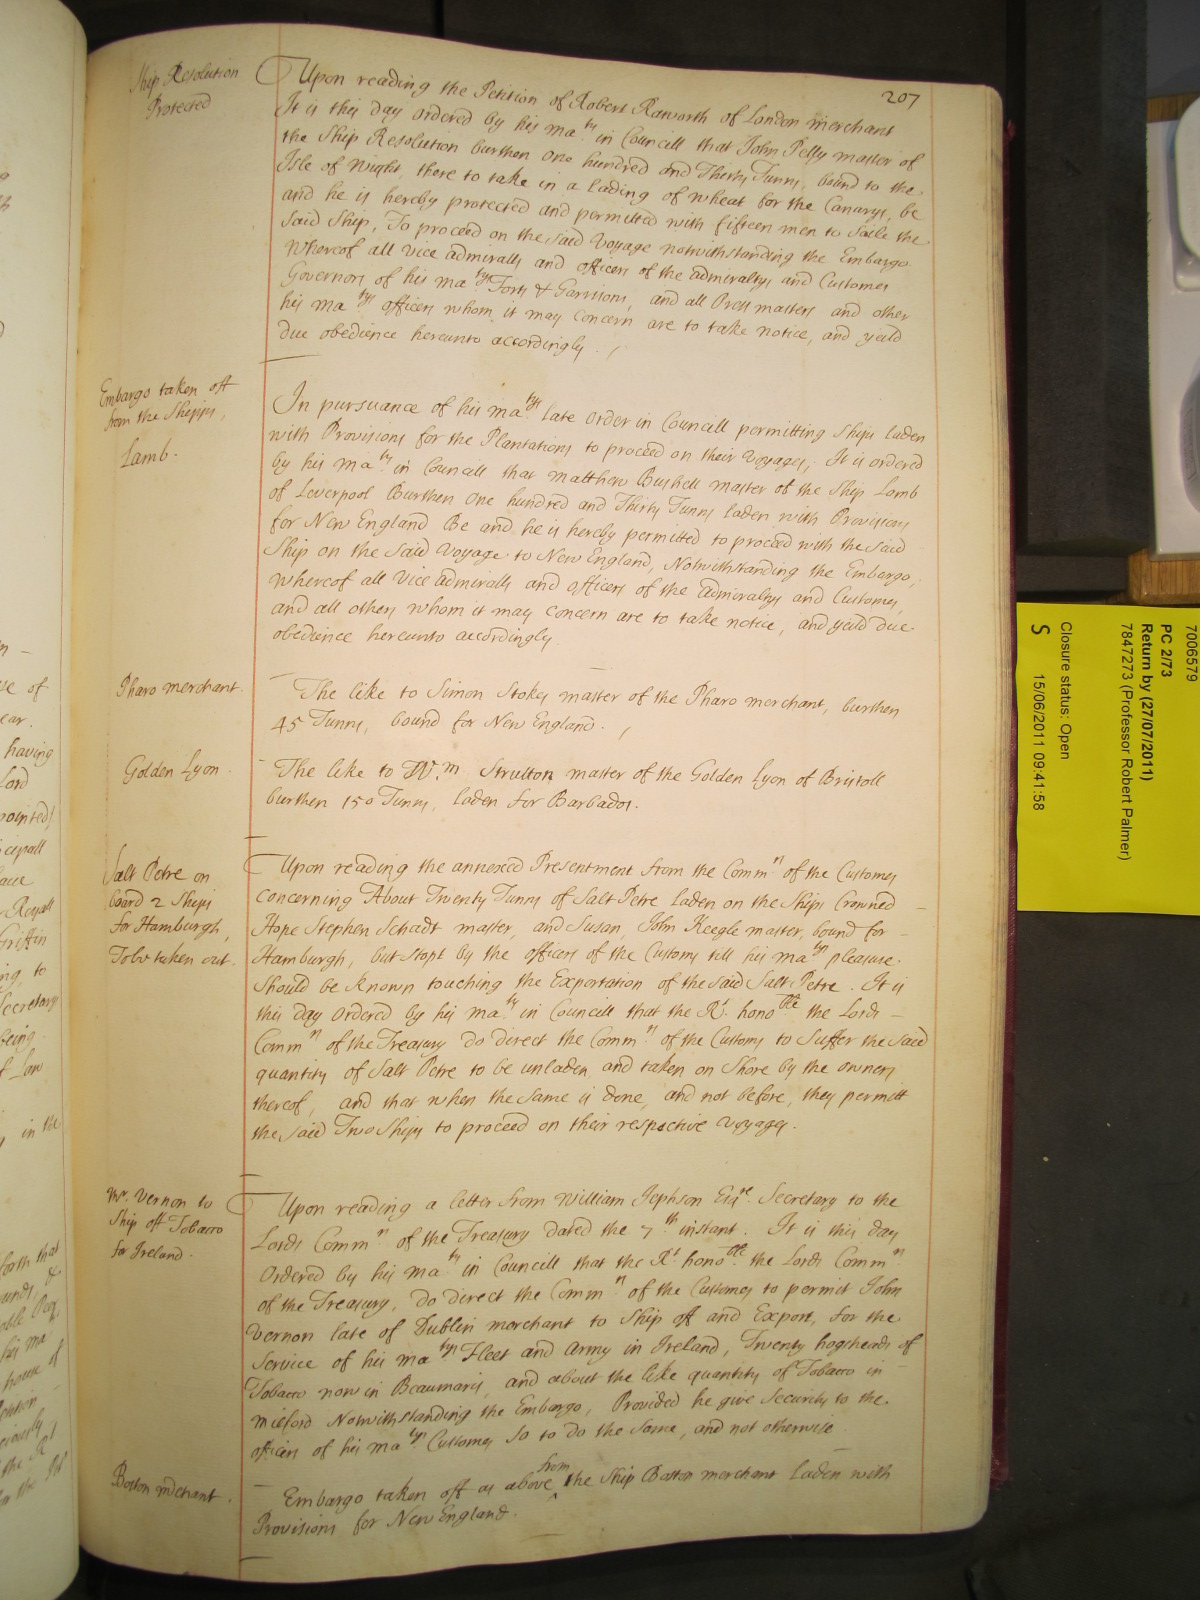 207
Ship Resolution
Protected
Upon reading the Petition of Robert Raworth of London merchant
It is this day ordered by his ma.ty in Councill that John Pelly master of
the Ship Resolution burthen One hundred and Thirty Tunns, bound to the
Isle of Wight, there to take in a lading of wheat for the Canarys, be
and he is hereby protected and permitted with fifteen men to Saile the
said Ship, To proceed on the said Voyage notwithstanding the Embargo
Whereof all Vice Admiralls and officers of the Admiralty and Customes
Governors of his ma.tys Forts & Garrisons, and all Press masters and other
his ma.tys officers whom it may Concern are to take notice, and yeild
due obedience hereunto accordingly.
Embargo taken off
from the Shipps,
Lamb.
In pursuance of his ma.tys late Order in Councill permitting Ships laden
with Provisions for the Plantations to proceed on their Voyages, It is ordered
by his ma.ty in Councill that Matthew Bushell master of the Ship Lamb
of Leverpool Burthen One hundred and Thirty Tunns laden with Provisions
for New England Be and he is hereby permitted to proceed with the said
Ship on the said Voyage to New England, Notwithstanding the Embargo,
whereof all Vice Admiralls and officers of the Admiralty and Customes,
and all others whom it may Concern are to take notice, and yeild due
obedience hereunto accordingly
Pharo merchant.
The like to Simon Stokes master of the Pharo merchant, burthen
45 Tunns, bound for New England.
Golden Lyon.
The like to W.m Strutton master of the Golden Lyon of Bristoll
burthen 150 Tunns, laden for Barbados.
Salt Petre on
board 2 Ships
for Hamburgh,
To be taken out.
Upon reading the annexed Presentment from the Comm.rs of the Customes
concerning About Twenty Tunns of Salt Petre laden on the Ships Crowned
Hope Stephen Schadt master, and Susan, John Keegle master, bound for
Hamburgh, but Stopt by the officers of the Customes till his ma.tys pleasure
should be known touching the Exportation of the said Salt Petre. It is
this day Ordered by his ma.ty in Councill that the R.t hono.ble the Lords
Comm.rs of the Treasury do direct the Comm.rs of the Customs to Suffer the said
quantity of Salt Petre to be unladen and taken on Shore by the owners
thereof, and that when the same is done, and not before, they permitt
the said Two Ships to proceed on their respective Voyages.
Mr. Vernon to
Ship off Tobacco
for Ireland.
Upon reading a letter from William Jephson Esq.re Secretary to the
Lords Comm.rs of the Treasury dated the 7.th instant. It is this day
Ordered by his ma.ty in Councill that the R.t hono.ble the Lords Comm.rs
of the Treasury, do direct the Comm.rs of the Customes to permit John
Vernon late of Dublin merchant to Ship off and Export, for the
Service of his ma.tys Fleet and Army in Ireland, Twenty hogsheads of
Tobacco now in Beaumaris, and about the like quantity of Tobacco in
Milford Notwithstanding the Embargo, Provided he give Security to the
officers of his ma.tys Customes so to do the same, and not otherwise
Boston merchant.
Embargo taken off as above from the Ship Boston merchant laden with
Provisions for New England.
7006579
PC 2/73
Return by (27/07/2011)
7847273 (Professor Robert Palmer)
Closure status: Open
S 15/06/2011 09:41:58